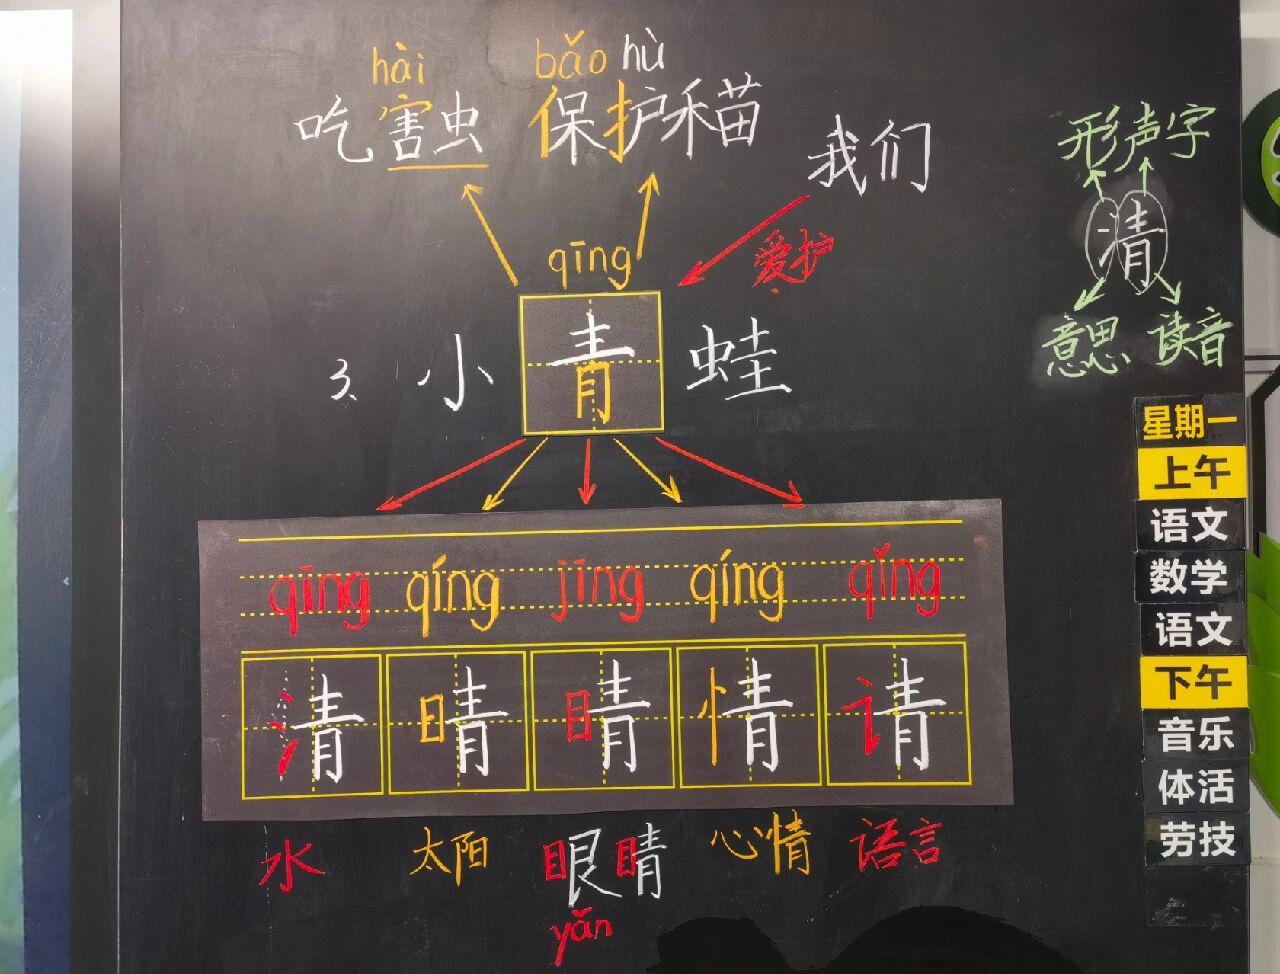 hài bǎo hù
吃害虫 保护禾苗
我们
爱护
qīng
3、小青蛙
qīng qíng jīng qíng qǐng
清 晴 睛 情 请
水 太阳 眼睛 心情 语言
yǎn
形声字
清
意思 读音
星期一
上午
语文
数学
语文
下午
音乐
体活
劳技